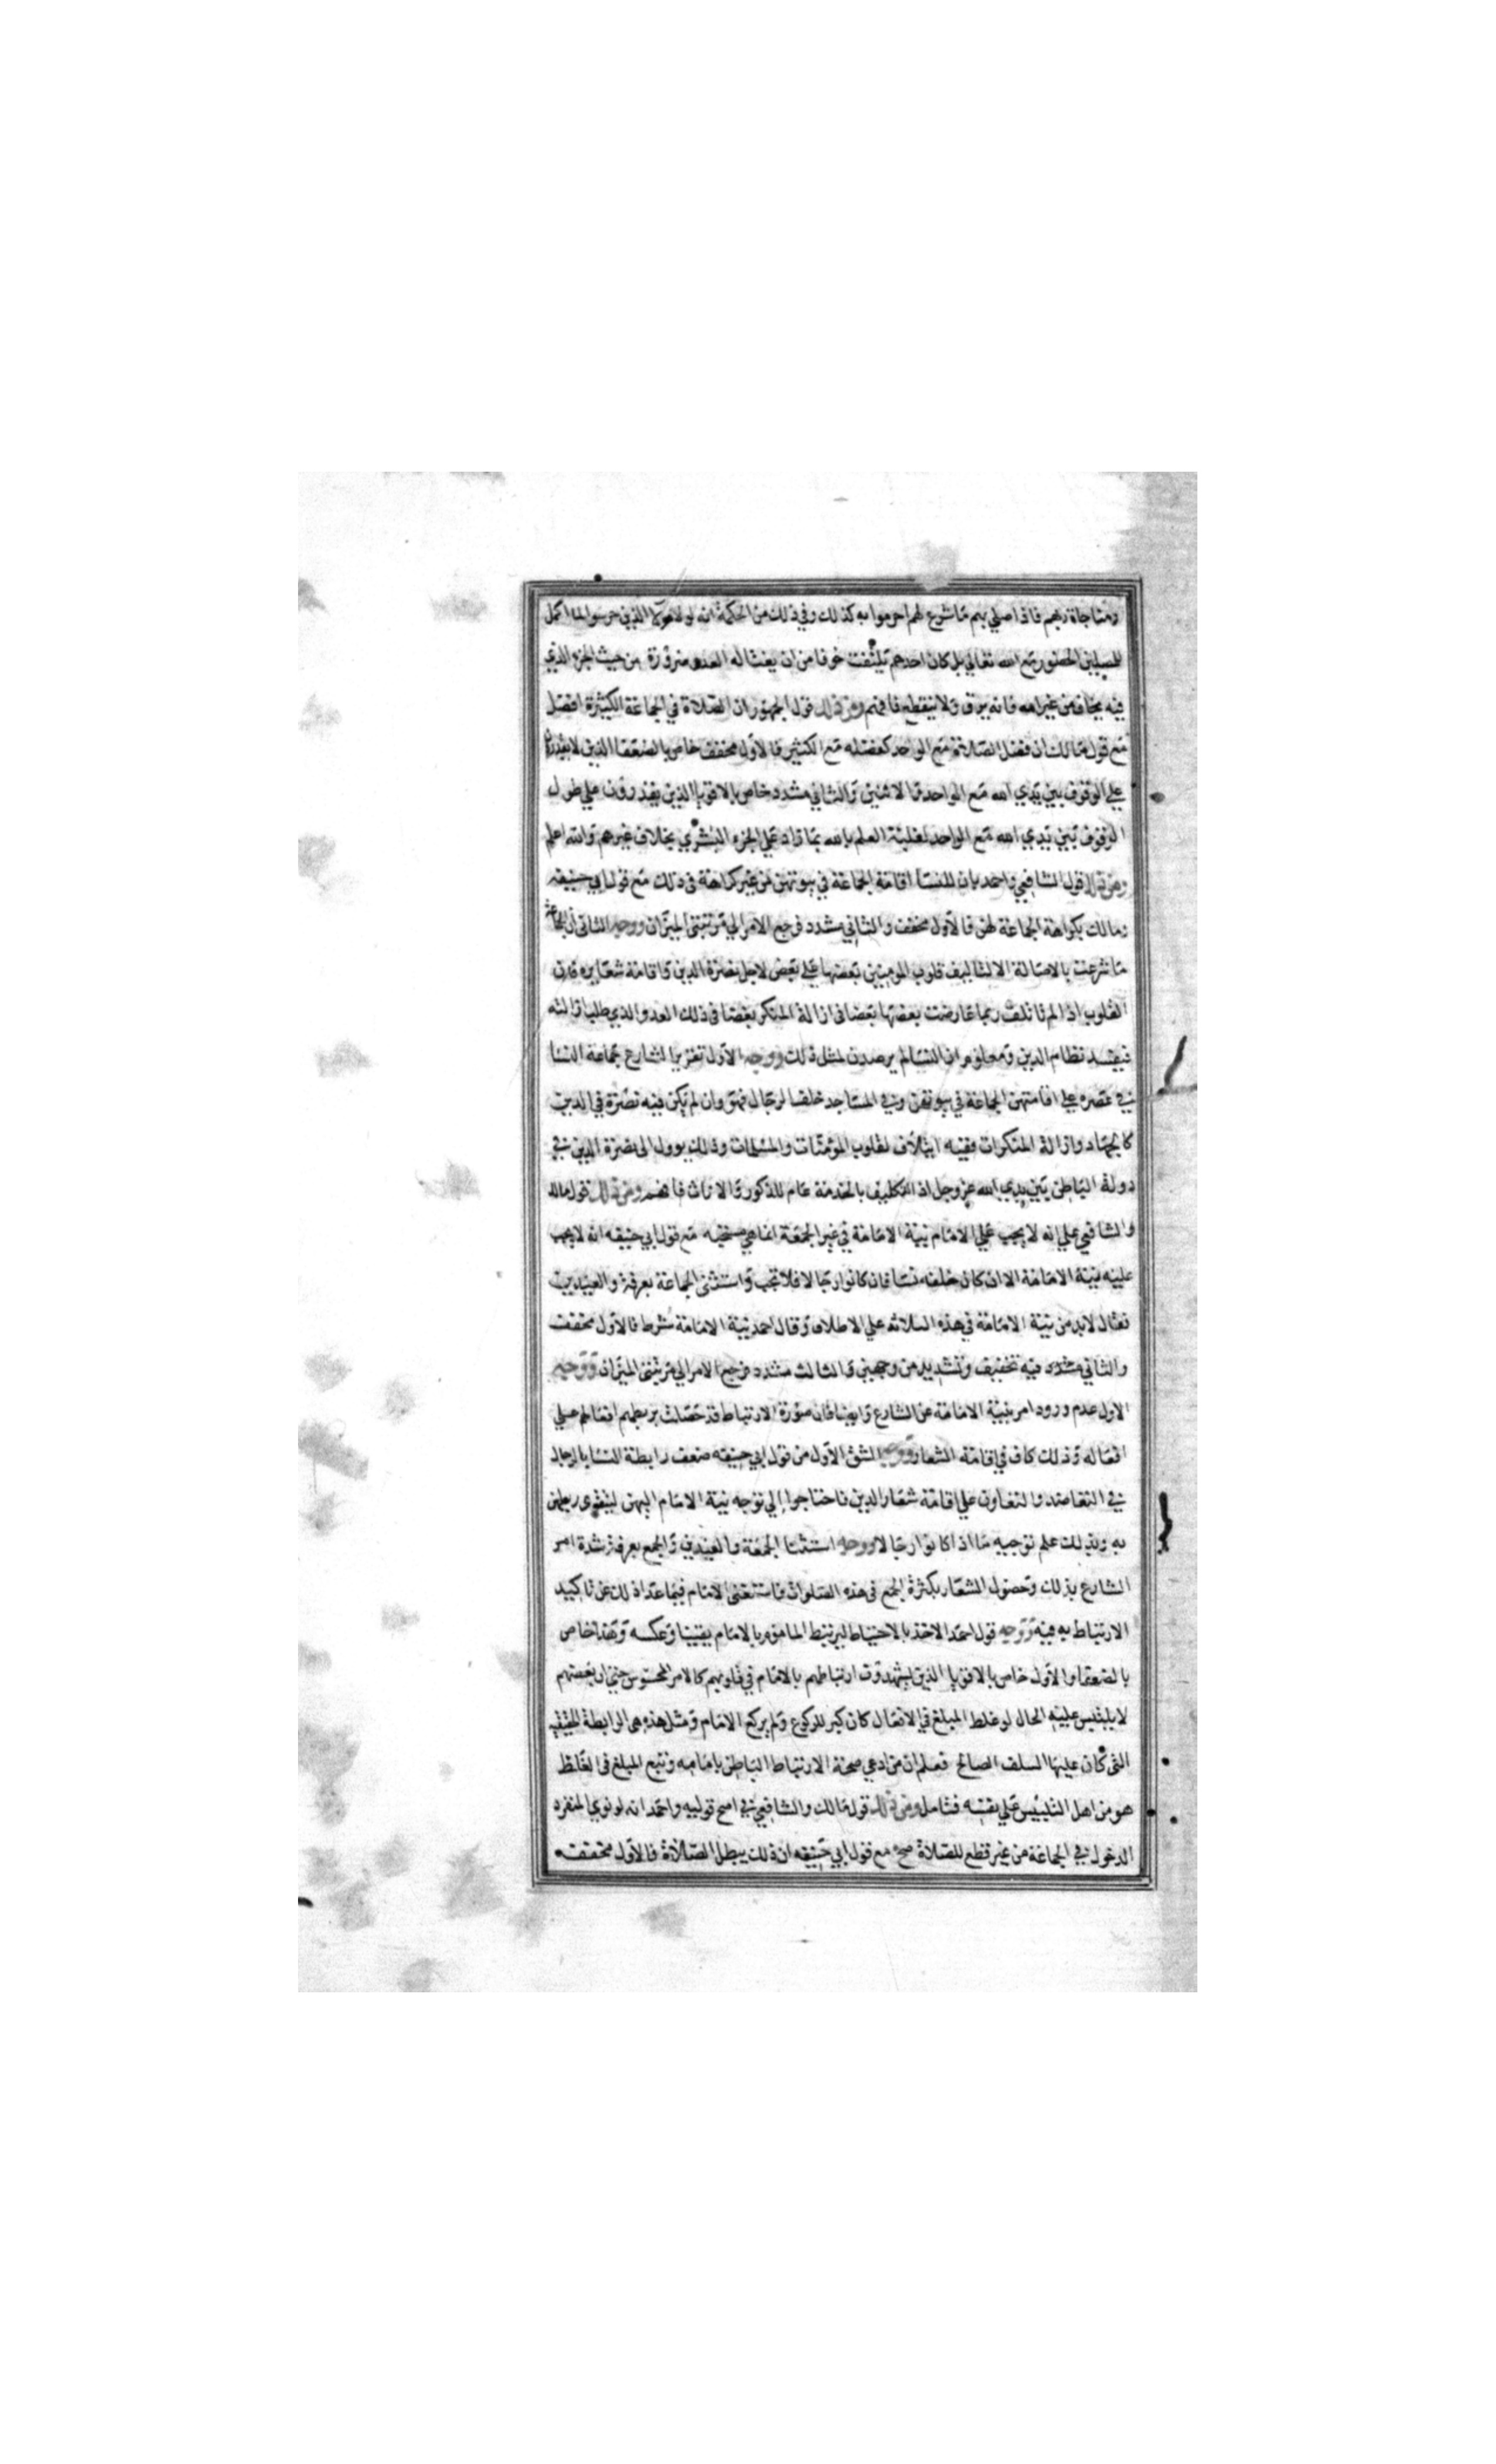 ومناجاة ربهم فاذا صلي بهم ما شرع لهم احرموا به كذلك وفي ذلك من الحكمة انه لولا هولا الذين حرسوا لما اكمل
للمصلين الحضور مع الله تعالي بل كان احدهم يلتفت خوفا من ان يغتاله العدو ضرورة من حيث الجزء الذي
فيه يخاف من غير الله فانه يرق ولا ينقطع فافهم ومن ذلك قول الجمهور ان الصلاة في الجماعة الكثيرة افضل
مع قول مالك ان فضل الصلاة مع الواحد كفضله مع الكثير فالاول مخفف خاص بالضعفا الذين لا يقدرون
علي الوقوف بين يدي الله مع الواحد والاثنين والثاني مشدد خاص بالاقويا الذين يقدرون علي طول
الوقوف بين يدي الله مع الواحد لغلبة العلم بالله بما زاد علي الجزء البشري بخلاف غيرهم والله اعلم
ومن ذلك قول الشافعي واحمد بان للنسا اقامة الجماعة في بيوتهن من غير كراهة في ذلك مع قول ابي حنيفه
ومالك بكراهة الجماعة لهن فالاول مخفف والثاني مشدد فرجع الامر الي مرتبتي الميزان ووجه الثاني ان الجماعة
ما شرعت بالاصالة الا لتاليف قلوب المومنين بعضها علي بعض لاجل نصرة الدين واقامة شعايره فان
القلوب اذا لم تاتلف ربما عارضت بعضها بعضا في ازالة المنكر بغضا في ذلك العدو الذي طلب ازالته
فيفسد نظام الدين ومعلوم ان النسا لم يرصدن لمثل ذلك ووجه الاول تقرير الشارع جماعة النسا
في عصره علي اقامتهن الجماعة في بيوتهن وفي المساجد خلف الرجال فهو وان لم يكن فيه نصرة في الدين
كالجهاد وازالة المنكرات ففيه ايتلاف لقلوب المؤمنات والمسلمات وذلك يوول الى نصرة الدين في
دولة الباطن بين يدي الله عز وجل اذ التكليف بالخدمة عام للذكور والاناث فافهم ومن ذلك قول مالك
والشافعي علي انه لا يجب علي الامام نية الامامة في غير الجمعة انما هي مستحبه مع قول ابي حنيفه انه لا يجب
عليه نية الامامة الا ان كان خلفه نسا فان كانوا رجالا فلا تجب واستثنى الجماعة بعرفة والعيدين
فقال لابد من نية الامامة في هذه الثلاثه علي الاطلاق وقال احمد نية الامامة شرط فالاول مخفف
والثاني مشدد فيه تخفيف وتشديد من وجهين والثالث مشدد فرجع الامر الي مرتبتي الميزان ووجه
الاول عدم ورود امر بنية الامامة عن الشارع وايضا فان صورة الارتباط قد حصلت بربطهم افعالهم علي
افعاله وذلك كاف في اقامة الشعار ووجه الشق الاول من قول ابي حنيفه ضعف رابطة النسا بالرجال
في التعاضد والتعاون علي اقامة شعار الدين فاحتاجوا الي توجه نية الامام اليهن ليقوى ربطهن
به وبذلك علم توجيه ما اذا كانوا رجالا ووجه استثنا الجمعة والعيدين والجمع بعرفة شدة امر
الشارع بذلك وحصول الشعار بكثرة الجمع في هذه الصلوات فاستغنى الامام فيما عدا ذلك عن تاكيد
الارتباط به فيه ووجه قول احمد الاخذ بالاحتياط ليرتبط الماموم بالامام يقينا وعكسه وهذا خاص
بالضعفا والاول خاص بالاقويا الذين يشهدون ارتباطهم بالامام في قلوبهم كالامر المحسوس حتي ان بعضهم
لا يلتبس عليه الحال لو غلط المبلغ في الافعال كان كبر للركوع ولم يركع الامام ومثل هذه هي الرابطة الحقيقيه
التي كان عليها السلف الصالح فعلم ان من ادعي صحة الارتباط الباطن بامامه وتبع المبلغ في الغلط
هو من اهل التلبيس علي نفسه فتامل ومن ذلك قول مالك والشافعي في اصح قوليه واحمد انه لو نوي المنفرد
الدخول في الجماعة من غير قطع للصلاة صح مع قول ابي حنيفه ان ذلك يبطل الصلاة فالاول مخفف